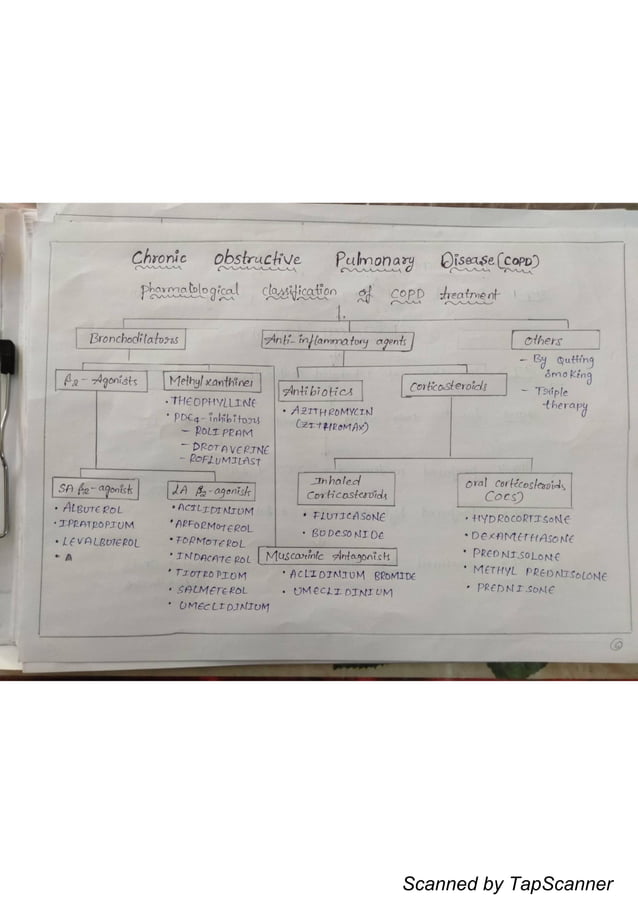 Chronic Obstructive Pulmonary Disease (COPD)
pharmatological classification of COPD treatment
Bronchodilators
Anti-inflammatory agents
Others
- By Qutting
smoking
- Triple
therapy
β2-Agonists
Methylxanthines
• THEOPHYLLINE
• PDE4-inhibitors
- ROLIPRAM
- DROTAVERINE
- ROFLUMILAST
Antibiotics
• AZITHROMYCIN
(ZITHROMAX)
Corticosteroids
SA β2-agonists
• ALBUTEROL
• IPRATROPIUM
• LEVALBUTEROL
• A
LA β2-agonists
• ACILIDINIUM
• ARFORMOTEROL
• FORMOTEROL
• INDACATEROL
• TIOTROPIUM
• SALMETEROL
• UMECLIDINIUM
Inhaled
Corticosteroids
• FLUTICASONE
• BUDESONIDE
Muscarinic Antagonists
• ACLIDINIUM BROMIDE
• UMECLIDINIUM
Oral corticosteroids
(OCS)
• HYDROCORTISONE
• DEXAMETHASONE
• PREDNISOLONE
• METHYL PREDNISOLONE
• PREDNISONE
6
Scanned by TapScanner